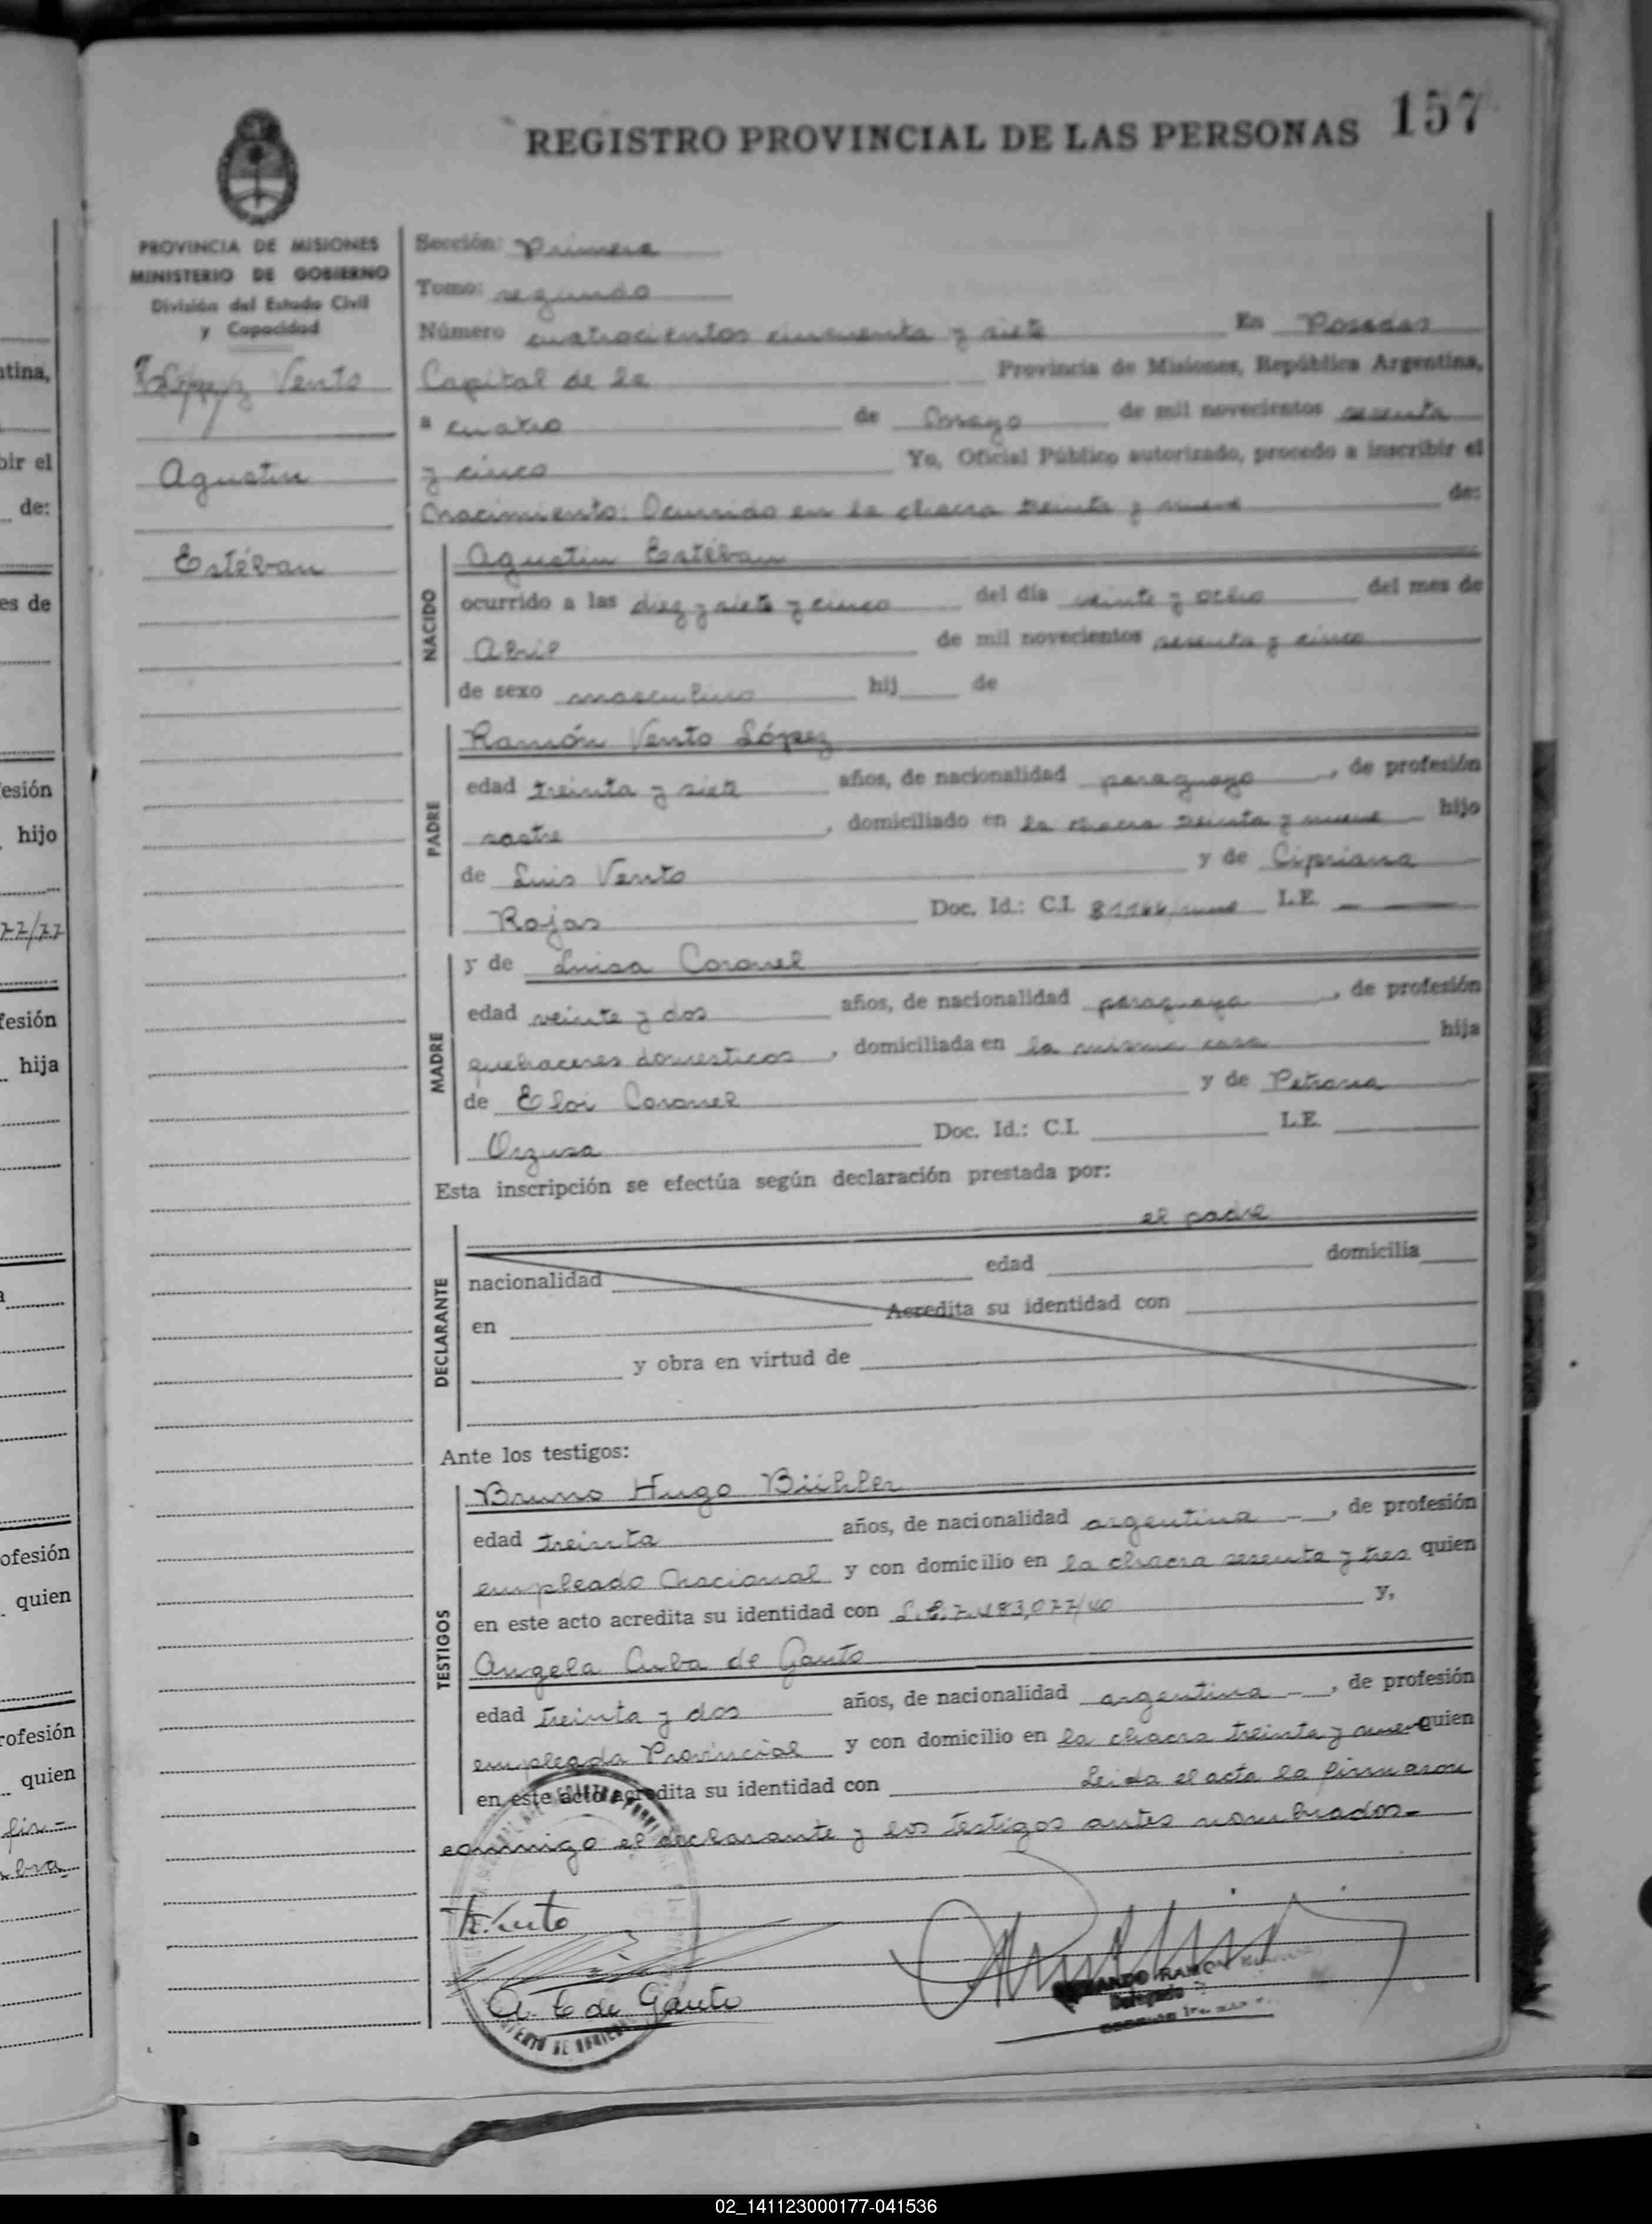 REGISTRO PROVINCIAL DE LAS PERSONAS 157
PROVINCIA DE MISIONES
MINISTERIO DE GOBIERNO
División del Estado Civil
y Capacidad
López Vento
Agustin
Estéban
Sección: Primera
Tomo: segundo
Número cuatrocientos cincuenta y siete En Posadas
Capital de la Provincia de Misiones, República Argentina,
a cuatro de Mayo de mil novecientos sesenta
y cinco Yo, Oficial Público autorizado, procedo a inscribir el
Nacimiento: Ocurrido en la chacra treinta y nueve de:
NACIDO
Agustin Estéban
ocurrido a las diez y siete y cinco del día veinte y ocho del mes de
Abril de mil novecientos sesenta y cinco
de sexo masculino hij de
PADRE
Ramón Vento López
edad treinta y siete años, de nacionalidad paraguayo, de profesión
sastre, domiciliado en la chacra treinta y nueve hijo
de Luis Vento y de Cipriana
Rojas Doc. Id.: C.I. L.E. —
MADRE
y de Luisa Coronel
edad veinte y dos años, de nacionalidad paraguaya, de profesión
quehaceres domesticos, domiciliada en la misma casa hija
de Eloi Coronel y de Petrona
Orzusa Doc. Id.: C.I. L.E.
Esta inscripción se efectúa según declaración prestada por:
el padre
DECLARANTE
nacionalidad edad domicilia
en Acredita su identidad con
y obra en virtud de
Ante los testigos:
TESTIGOS
Bruno Hugo Bühler
edad treinta años, de nacionalidad argentina —, de profesión
empleado Nacional y con domicilio en la chacra sesenta y tres quien
en este acto acredita su identidad con L.E. 7.483,077/40 y,
Angela Cuba de Gauto
edad treinta y dos años, de nacionalidad argentina —, de profesión
empleada Provincial y con domicilio en la chacra treinta y nueve quien
en este acto acredita su identidad con Leida el acta la firmaron
conmigo el declarante y los testigos antes nombrados.—
R. Vento
A. C de Gauto
RAMON
Delegado
tina,
bir el
de:
es de
esión
hijo
77/77
fesión
hija
ofesión
quien
rofesión
quien
fir-
02_141123000177-041536